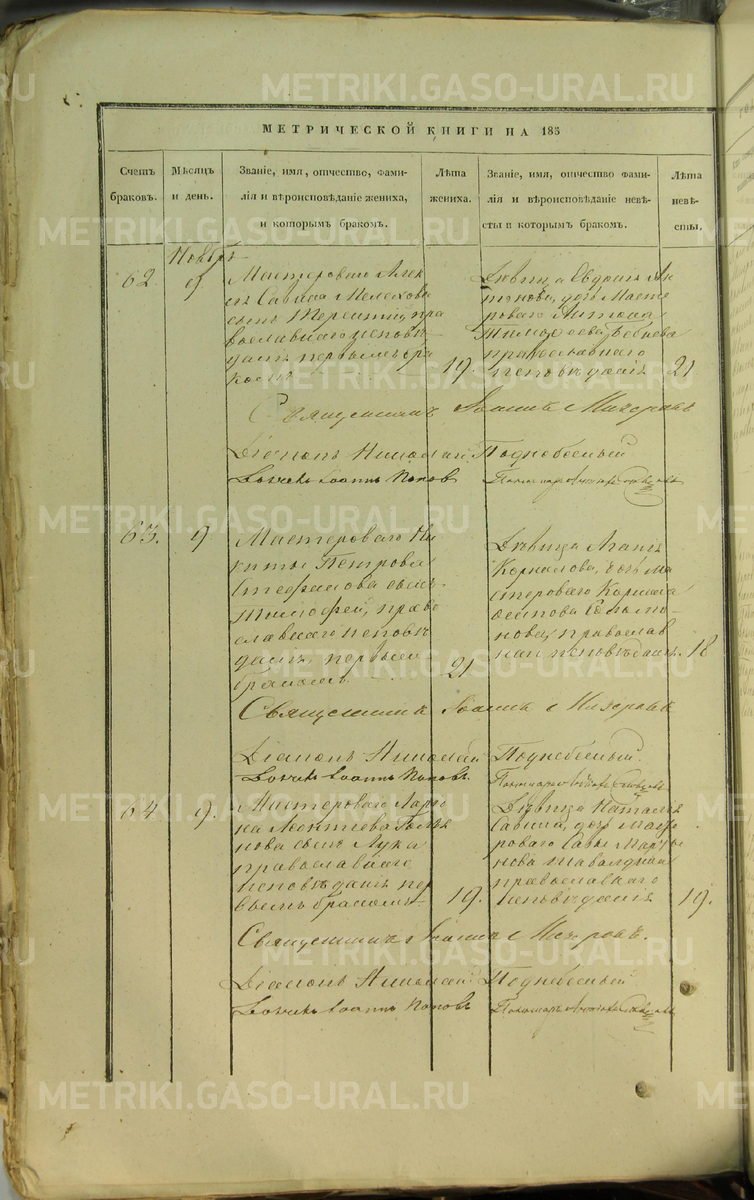 METRIKI.GASO-URAL.RU
МЕТРИЧЕСКОЙ КНИГИ НА 185
Счетъ браковъ.
Мѣсяцъ и день.
Званіе, имя, отчество, фами-
лія и вѣроисповѣданіе жениха,
и которымъ бракомъ.
Лѣта жениха.
Званіе, имя, отчество фами-
лія и вѣроисповѣданіе невѣ-
сты и которымъ бракомъ.
Лѣта невѣ-
сты.
Ноябрь
62. 9
Мастероваго Алек
сѣя Саввина
сынъ Терентій, пра
вославнаго исповѣ
данія первымъ бра
комъ
19.
Дѣвица Евдокія Ан
тонова, дочь Масте
роваго Антона
православнаго
исповѣданія
21
Священникъ Іоаннъ
Діаконъ Николай Поднебесный
Дьячекъ Іоаннъ Поповъ
Пономарь
63. 9
Мастероваго Ни
киты Петрова
Стефанова сынъ
Тимофей, право
славнаго исповѣ
данія, первымъ
бракомъ
21
Дѣвица Агапія
Корнилова, дочь Ма
стероваго Корнила
Осипова
нова, православ
наго исповѣданія.
18
Священникъ Іоаннъ
Діаконъ Николай Поднебесный.
Дьячекъ Іоаннъ Поповъ.
Пономарь
64. 9.
Мастероваго Ларіо
на Леонтьева
нова сынъ Лука
православнаго
исповѣданія пер
вымъ бракомъ
19.
Дѣвица Наталія
Саввина, дочь Масте
роваго Саввы Марты
нова
православнаго
исповѣданія
19.
Священникъ Іоаннъ
Діаконъ Николай Поднебесный
Дьячекъ Іоаннъ Поповъ
Пономарь